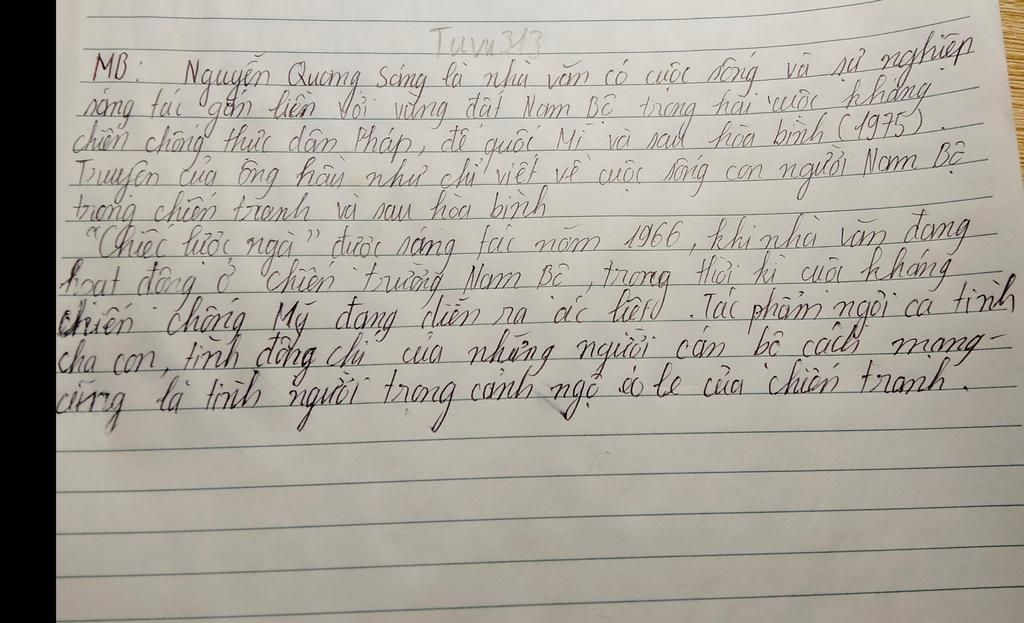 Tuvu313
MB: Nguyễn Quang Sáng là nhà văn có cuộc sống và sự nghiệp
sáng tác gắn liền với vùng đất Nam Bộ trong hai cuộc kháng
chiến chống thực dân Pháp, đế quốc Mĩ và sau hòa bình (1975).
Truyện của ông hầu như chỉ viết về cuộc sống con người Nam Bộ
trong chiến tranh và sau hòa bình
"Chiếc lược ngà" được sáng tác năm 1966, khi nhà văn đang
hoạt động ở chiến trường Nam Bộ, trong thời kì cuộc kháng
chiến chống Mỹ đang diễn ra ác liệt. Tác phẩm ngợi ca tình
cha con, tình đồng chí của những người cán bộ cách mạng-
cũng là tình người trong cảnh ngộ éo le của chiến tranh.